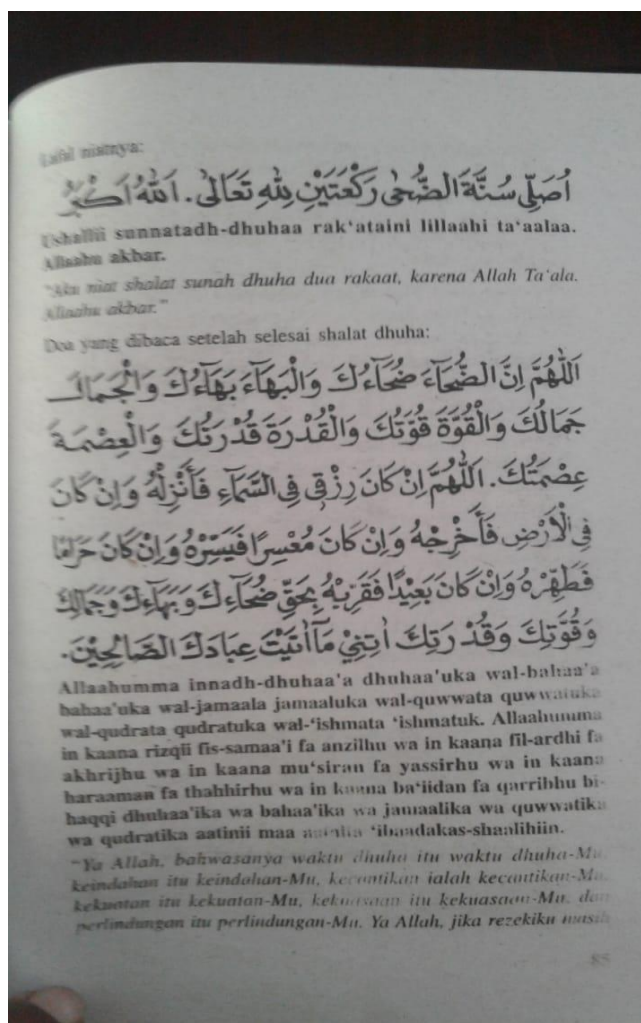 Lafal niatnya:
اُصَلِّى سُنَّةَ الضُّحٰى رَكْعَتَيْنِ لِلّٰهِ تَعَالٰى. اَللّٰهُ اَكْبَرُ
Ushallii sunnatadh-dhuhaa rak‘ataini lillaahi ta‘aalaa.
Allaahu akbar.
“Aku niat shalat sunah dhuha dua rakaat, karena Allah Ta‘ala.
Allaahu akbar.”
Doa yang dibaca setelah selesai shalat dhuha:
اَللّٰهُمَّ اِنَّ الضُّحَآءَ ضُحَآءُكَ وَالْبَهَآءَ بَهَآءُكَ وَالْجَمَالَ
جَمَالُكَ وَالْقُوَّةَ قُوَّتُكَ وَالْقُدْرَةَ قُدْرَتُكَ وَالْعِصْمَةَ
عِصْمَتُكَ. اَللّٰهُمَّ اِنْ كَانَ رِزْقِى فِى السَّمَآءِ فَأَنْزِلْهُ وَاِنْ كَانَ
فِى الْاَرْضِ فَأَخْرِجْهُ وَاِنْ كَانَ مُعْسِرًا فَيَسِّرْهُ وَاِنْ كَانَ حَرَامًا
فَطَهِّرْهُ وَاِنْ كَانَ بَعِيْدًا فَقَرِّبْهُ بِحَقِّ ضُحَآءِكَ وَبَهَاءِكَ وَجَمَالِكَ
وَقُوَّتِكَ وَقُدْرَتِكَ اٰتِنِيْ مَآاٰتَيْتَ عِبَادَكَ الصَّالِحِيْنَ.
Allaahumma innadh-dhuhaa’a dhuhaa’uka wal-bahaa’a
bahaa’uka wal-jamaala jamaaluka wal-quwwata quwwatuka
wal-qudrata qudratuka wal-‘ishmata ‘ishmatuk. Allaahumma
in kaana rizqii fis-samaa’i fa anzilhu wa in kaana fil-ardhi fa
akhrijhu wa in kaana mu‘siran fa yassirhu wa in kaana
haraaman fa thahhirhu wa in kaana ba‘iidan fa qarribhu bi-
haqqi dhuhaa’ika wa bahaa’ika wa jamaalika wa quwwatika
wa qudratika aatinii maa ‘ibaadakas-shaalihiin.
“Ya Allah, bahwasanya waktu dhuha itu waktu dhuha-Mu,
keindahan itu keindahan-Mu, kecantikan ialah kecantikan-Mu,
kekuatan itu kekuatan-Mu, kekuasaan itu kekuasaan-Mu, dan
perlindungan itu perlindungan-Mu. Ya Allah, jika rezekiku masih